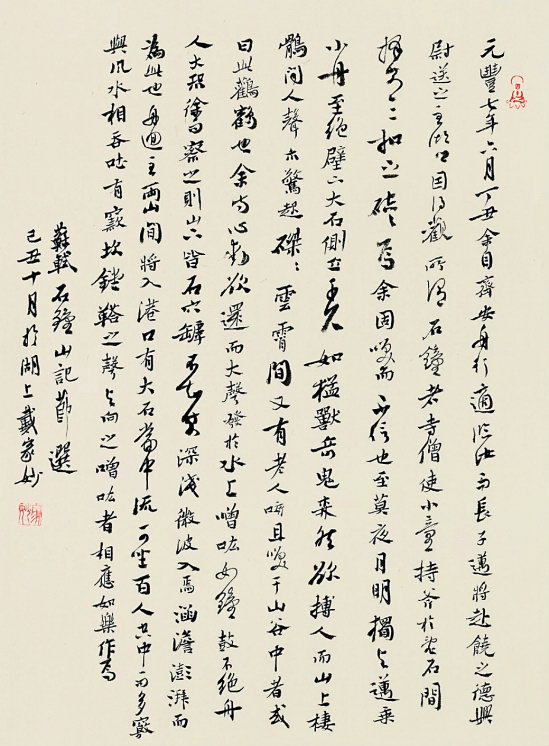 元豐七年六月丁丑余自齊安舟行適臨汝而長子邁將赴饒之德興
尉送之至湖口因得觀所謂石鐘者寺僧使小童持斧於亂石間
擇其一二扣之硿〻焉余固笑而不信也至莫夜月明獨與邁乘
小舟至絕壁下大石側立千尺如猛獸奇鬼森然欲搏人而山上棲
鶻聞人聲亦驚起磔〻雲霄間又有老人咳且笑于山谷中者或
曰此鸛鶴也余方心動欲還而大聲發於水上噌吰如鐘鼓不絕舟
人大恐徐而察之則山下皆石穴罅不知其深淺微波入焉涵澹澎湃而
為此也舟迴至兩山間將入港口有大石當中流可坐百人空中而多竅
與風水相吞吐有窾坎鏜鞳之聲與向之噌吰者相應如樂作焉
蘇軾石鐘山記節選
己丑十月於湖上戴家妙